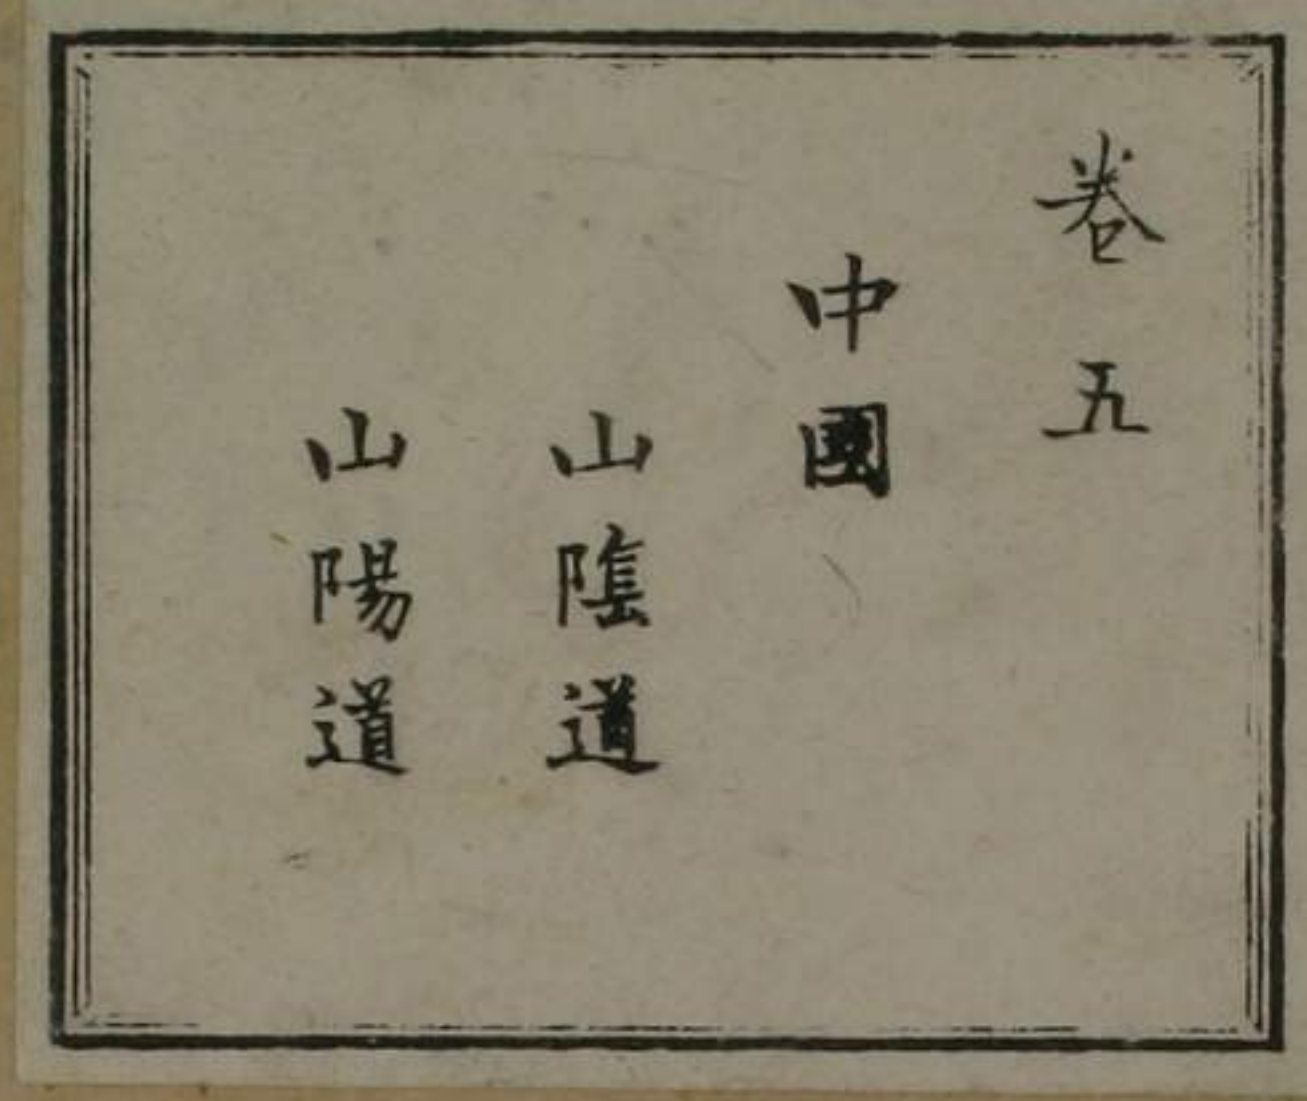 卷五
中國
山陰道
山陽道